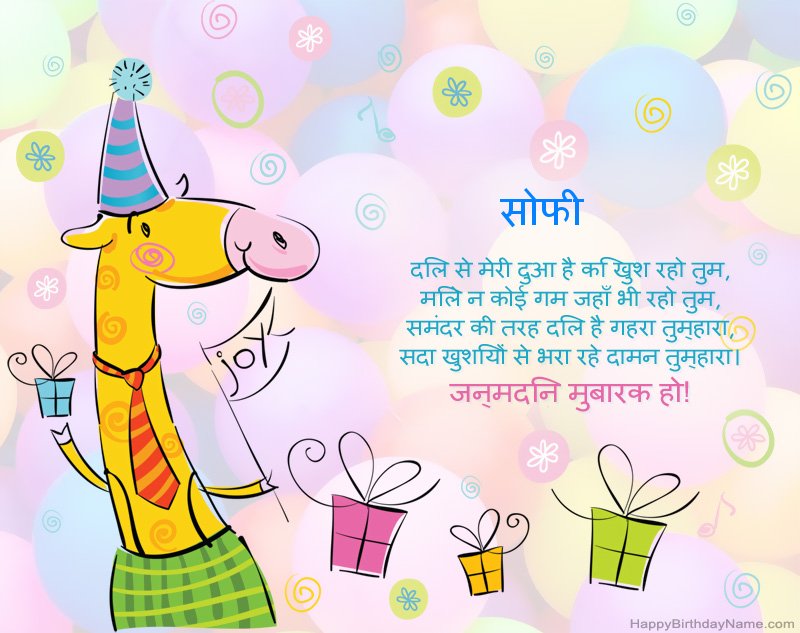 सोफी
दिल से मेरी दुआ है कि खुश रहो तुम,
मिले न कोई गम जहाँ भी रहो तुम,
समंदर की तरह दिल है गहरा तुम्हारा,
सदा खुशियों से भरा रहे दामन तुम्हारा।
जन्मदिन मुबारक हो!
joy
HappyBirthdayName.com